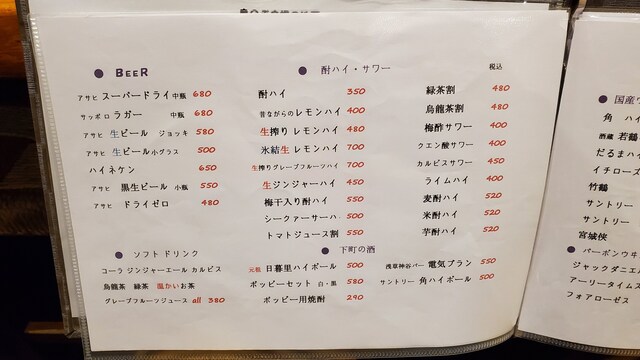 ● BEER
アサヒ スーパードライ 中瓶 680
サッポロ ラガー 中瓶 680
アサヒ 生ビール ジョッキ 580
アサヒ 生ビール 小グラス 500
ハイネケン 650
アサヒ 黒生ビール 小瓶 550
アサヒ ドライゼロ 480
● 酎ハイ・サワー
税込
酎ハイ 350
昔ながらのレモンハイ 400
生搾り レモンハイ 480
氷結生 レモンハイ 700
生搾りグレープフルーツハイ 700
生ジンジャーハイ 450
梅干入り酎ハイ 550
シークァーサーハイ 500
トマトジュース割 550
緑茶割 480
烏龍茶割 480
梅酢サワー 400
クエン酸サワー 400
カルピスサワー 450
ライムハイ 400
麦酎ハイ 520
米酎ハイ 520
芋酎ハイ 520
● ソフトドリンク
コーラ ジンジャーエール カルピス
烏龍茶 緑茶 温かいお茶
グレープフルーツジュース all 380
● 下町の酒
元祖 日暮里ハイボール 500
ホッピーセット 白・黒 580
ホッピー用焼酎 290
浅草神谷バー 電気ブラン 550
サントリー 角ハイボール 500
● 国産ウ
角 ハイ
酒蔵 若鶴
だるまハイ
イチローズ
竹鶴
サントリー
サントリー
宮城峡
● バーボンウヰ
ジャックダニエ
アーリータイムス
フォアローゼス